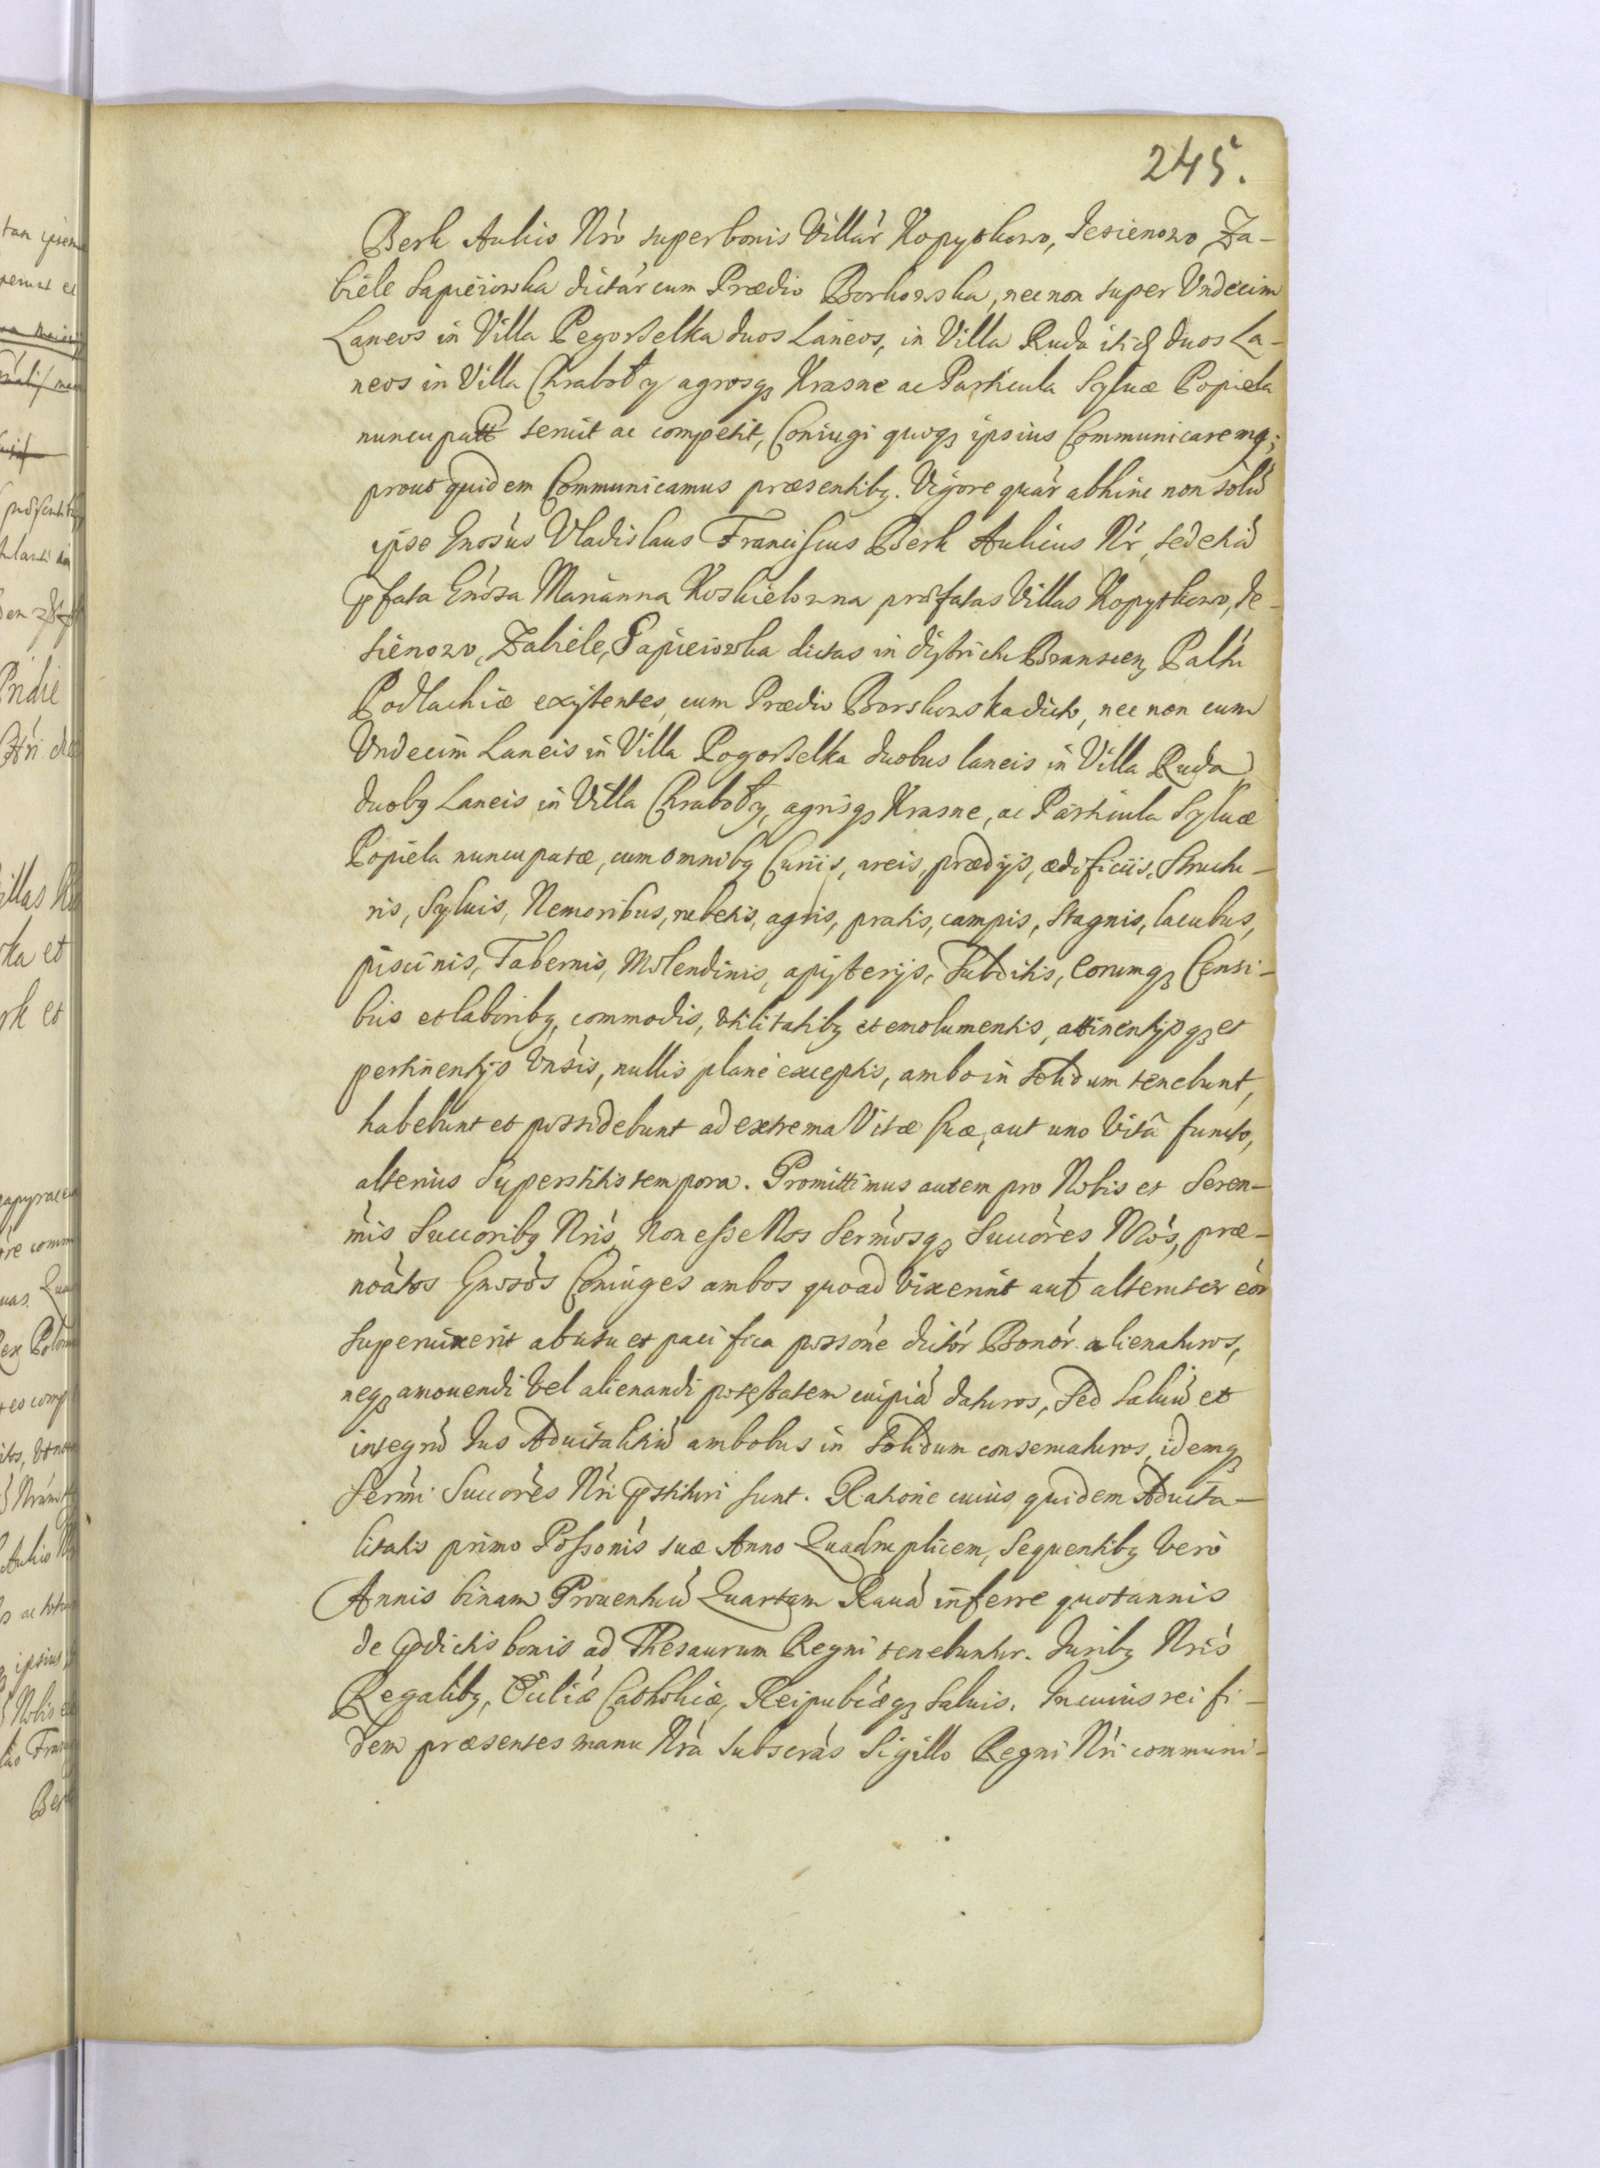 245.
Berk Aulico Nró super bonis Villár Kopytkowo, Jesienowo Za-
biele Sapieiowska dictár cum Prædio Borkowska, nec non super Vndecim
Laneos in Villa Pogorselka duos Laneos, in Villa Ruda itid duos La-
neos in Villa Chraboły agrosq3 Krasne ac Particula Syluæ Popiela
nuncupatæ seruit ac competit, Coniugi quoq3 ipsius Communicaremq;
prout quidem Communicamus præsentibq. Vigore quár abhinc non solú
ipse Gnósus Vladislaus Franciscus Berk Aulicus Nŕ, sed etiá
pfata Gnósa Marianna Koskielowna præfatas Villas Kopytkowo, Je-
sienowo, Zabiele, Sapieiowska dictas in districtu Branscen, Paltú
Podlachiæ existentes, cum Prædio Borskowska dicto, nec non cum
Vndecim Laneis in Villa Pogorselka duobus laneis in Villa Ruda,
duobq Laneis in Villa Chraboły, agrisq3 Krasne, ac Particula Syluæ
Popiela nuncupatæ, cum omnibq Curiis, areis, prædijs, ædificiis, Structu-
ris, Syluis, Nemoribus, rubetis, agris, pratis, campis, stagnis, lacubus,
piscinis, Tabernis, Molendinis, apisterijs, Subditis, Eorumq3 Censi-
bus et laboribq, commodis, vtilitatibq et emolumentis, attinentijsq3 et
pertinentijs vnśis, nullis plane exceptis, ambo in solidum tenebunt,
habebunt et possidebunt ad extrema Vitæ suæ, aut uno Vitâ functo,
alterius Superstitis tempora. Promittimus autem pro Nobis et Seren-
mis Succoribq Nrís, Non esse Nos Sermósq3 Succóres Nrós, præ-
noátos Gnosós Coniuges ambos quoad vixerint aut alteruter eór
superuixerit ab usu et pacifica possóne dictór Bonór alienaturos,
neq3 amouendi vel alienandi potestatem cuipiá daturos, Sed Saluú et
integrú Jus Aduitalitiú ambobus in solidum conseruaturos, idemq3
Sermi Succóres Nrí pstituri sunt. Ratione cuius quidem Aduita-
litatis primo Possonis suæ Anno Quadruplicem, Sequentibq vero
Annis binam Prouentuú Quartam Rauá inferre quotannis
de pdictis bonis ad Thesaurum Regni tenebuntur. Juribq Nrís
Regalibq, Ecliæ Catholicæ, Reipubcæq3 saluis. In cuius rei fi-
dem præsentes manu Nrá Subscrás Sigillo Regni Nrí communi-